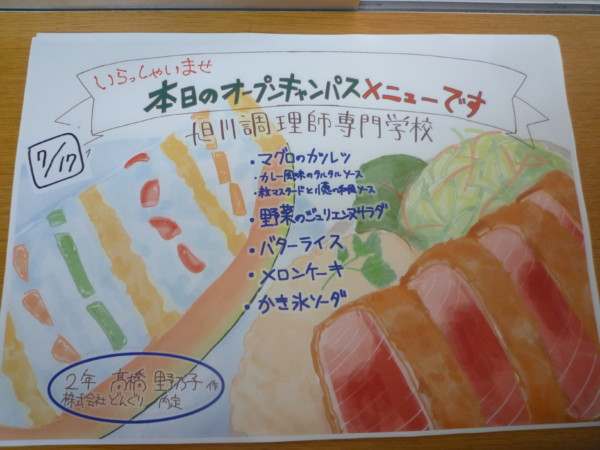 いらっしゃいませ
本日のオープンキャンパスメニューです
旭川調理師専門学校
7/17
・マグロのカツレツ
・カレー風味のタルタルソース
・粒マスタードと小葱の和風ソース
・野菜のジュリエンヌサラダ
・バターライス
・メロンケーキ
・かき氷ソーダ
2年 髙橋 野乃子 作
株式会社どんぐり 内定